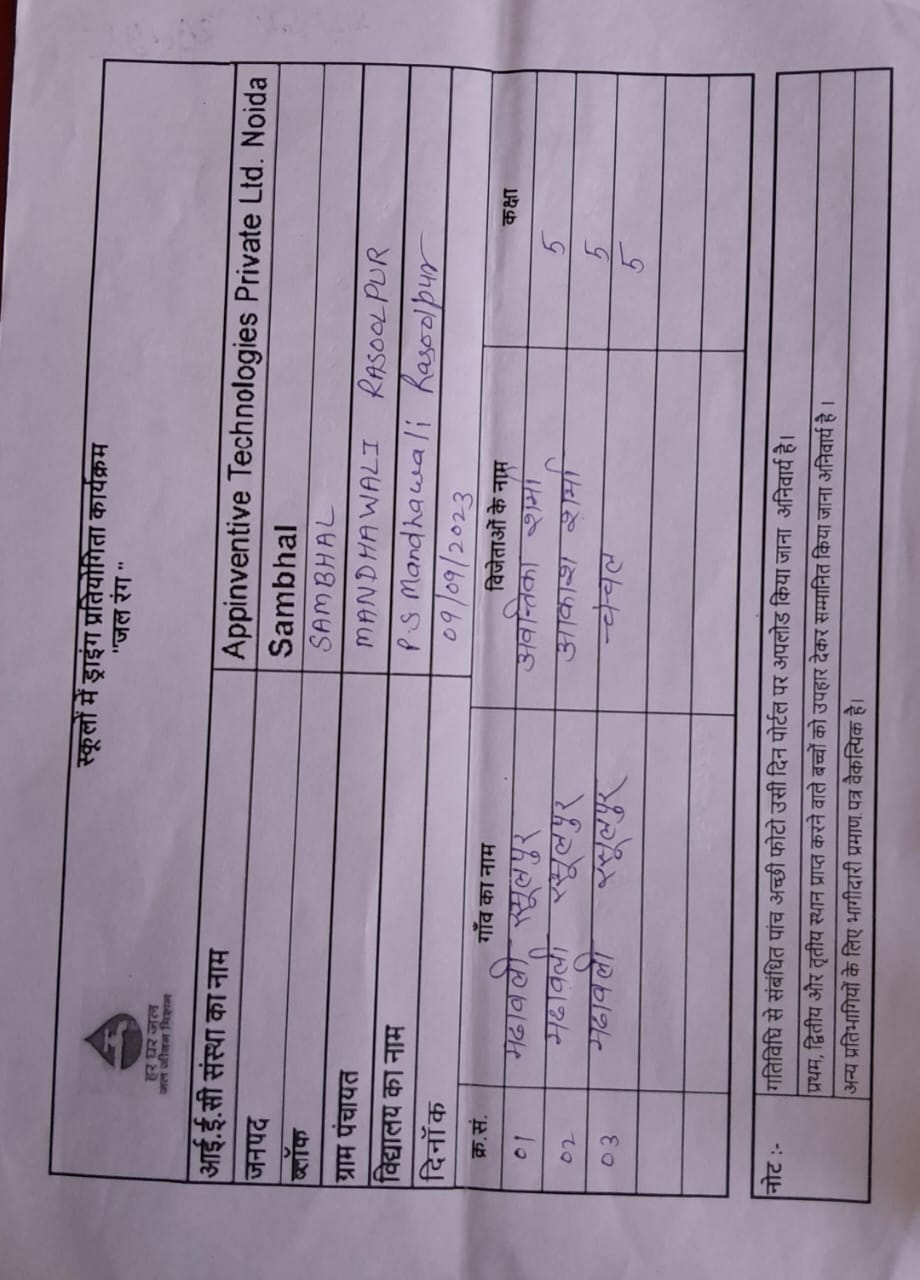 स्कूलों में ड्राइंग प्रतियोगिता कार्यक्रम
"जल रंग"
हर घर जल
जल जीवन मिशन
आई.ई.सी संस्था का नाम Appinventive Technologies Private Ltd. Noida
जनपद Sambhal
ब्लॉक SAMBHAL
ग्राम पंचायत MANDHAWALI RASOOLPUR
विद्यालय का नाम P.S Mandhawali Rasoolpur
दिनॉक 09/09/2023
क्र.सं. गाँव का नाम विजेताओं के नाम कक्षा
01 मढावली रसूलपुर अवन्तिका शर्मा 5
02 मढावली रसूलपुर आकाश शर्मा 5
03 मढावली रसूलपुर चंचल 5
नोट :- गतिविधि से संबंधित पांच अच्छी फोटो उसी दिन पोर्टल पर अपलोड किया जाना अनिवार्य है।
प्रथम, द्वितीय और तृतीय स्थान प्राप्त करने वाले बच्चों को उपहार देकर सम्मानित किया जाना अनिवार्य है।
अन्य प्रतिभागियों के लिए भागीदारी प्रमाण पत्र वैकल्पिक है।